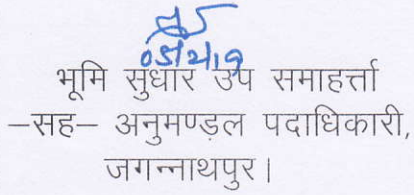 05/2/19
भूमि सुधार उप समाहर्त्ता
–सह– अनुमण्ड़ल पदाधिकारी,
जगन्नाथपुर।